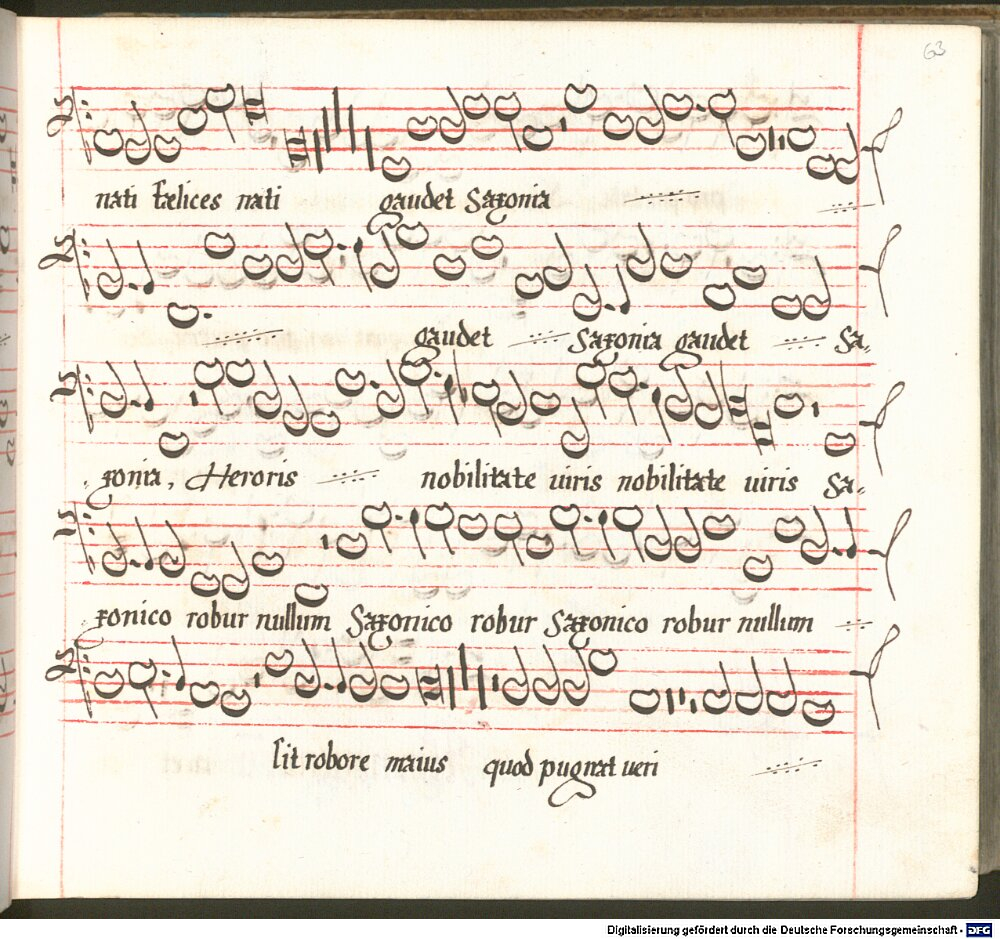 63
nati fælices nati gaudet Saxonia
gaudet Saxonia gaudet Sa=
xonia, Heroris nobilitate uiris nobilitate uiris Sa=
xonico robur nullum Saxonico robur Saxonico robur nullum
sit robore maius quod pugnat ueri
Digitalisierung gefördert durch die Deutsche Forschungsgemeinschaft - DFG